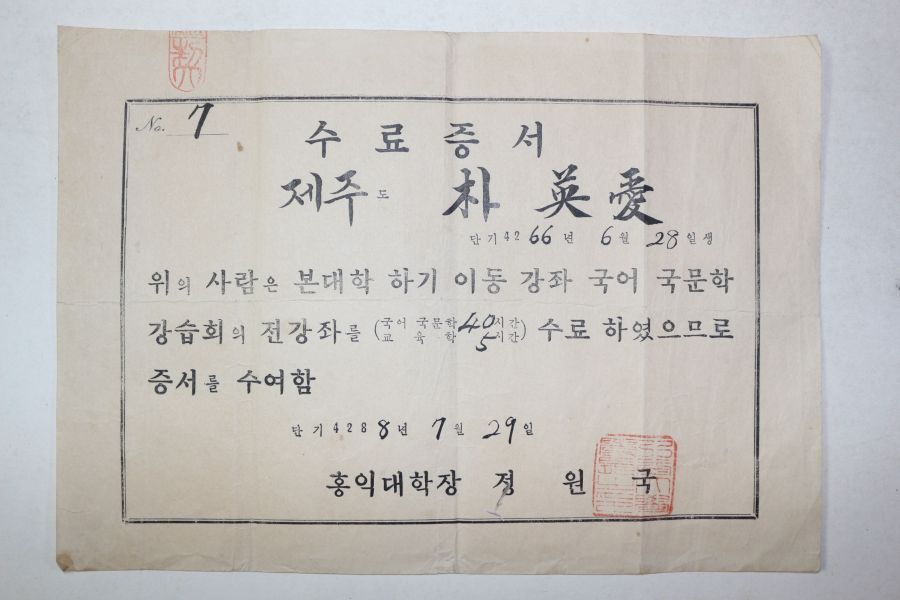 No. 7
수료증서
제주도 朴英愛
단기 4266년 6월 28일생
위의 사람은 본대학 하기 이동 강좌 국어 국문학
강습회의 전강좌를 (국어 국문학 40시간 교육학 5시간) 수료 하였으므로
증서를 수여함
단기 4288년 7월 29일
홍익대학장 정원국